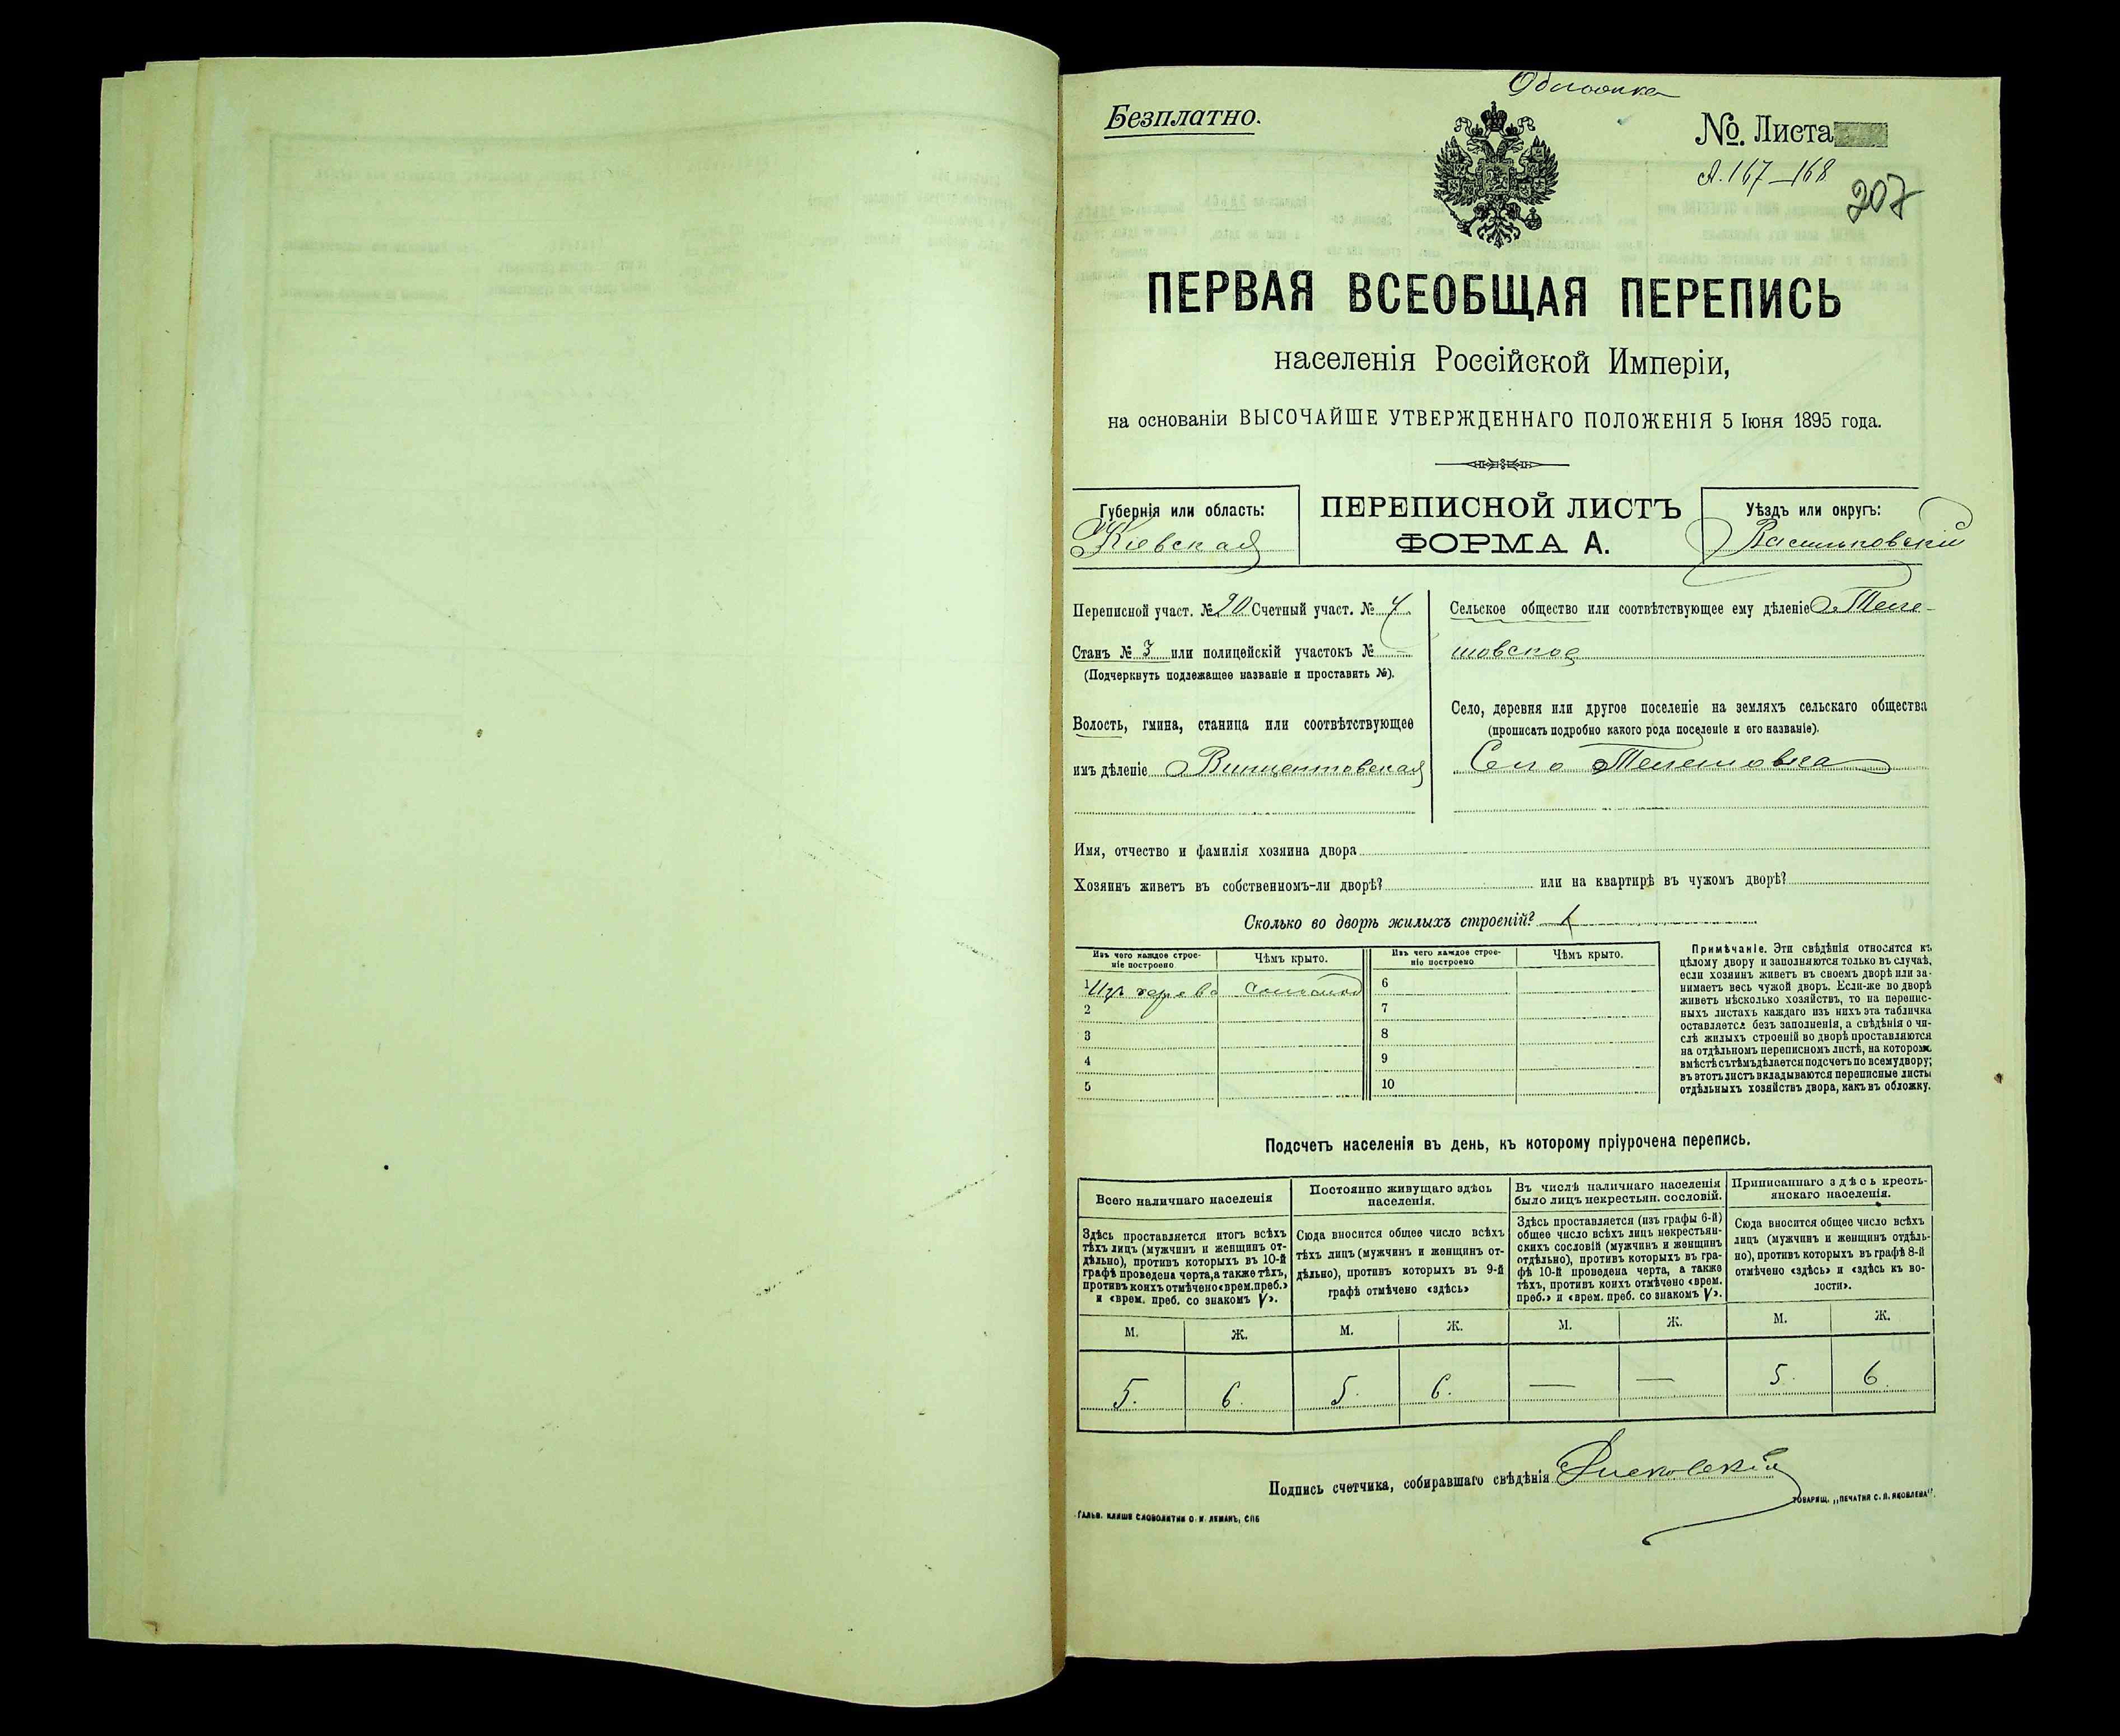 Обложка
Безплатно.
№. Листа
А. 167–168
207
ПЕРВАЯ ВСЕОБЩАЯ ПЕРЕПИСЬ
населенія Россійской Имперіи,
на основаніи ВЫСОЧАЙШЕ УТВЕРЖДЕННАГО ПОЛОЖЕНІЯ 5 Іюня 1895 года.
Губернія или область:
Кіевская
ПЕРЕПИСНОЙ ЛИСТЪ
ФОРМА А.
Уѣздъ или округъ:
Васильковскій
Переписной участ. № 20 Счетный участ. № 4
Станъ № 3 или полицейскій участокъ № –
(Подчеркнуть подлежащее названіе и проставить №).
Волость, гмина, станица или соотвѣтствующее
имъ дѣленіе Винцентовская
Сельское общество или соотвѣтствующее ему дѣленіе Теле-
шовское
Село, деревня или другое поселеніе на земляхъ сельскаго общества
(прописать подробно какого рода поселеніе и его названіе).
Село Телешовка
Имя, отчество и фамилія хозяина двора
Хозяинъ живетъ въ собственномъ-ли дворѣ? или на квартирѣ въ чужомъ дворѣ?
Сколько во дворѣ жилыхъ строеній? 1
Изъ чего каждое строе-
ніе построено
Чѣмъ крыто.
Изъ чего каждое строе-
ніе построено
Чѣмъ крыто.
1 Изъ дерева соломой 6
2 7
3 8
4 9
5 10
Примѣчаніе. Эти свѣдѣнія относятся къ
цѣлому двору и заполняются только въ случаѣ,
если хозяинъ живетъ въ своемъ дворѣ или за-
нимаетъ весь чужой дворъ. Если-же во дворѣ
живетъ нѣсколько хозяйствъ, то на перепис-
ныхъ листахъ каждаго изъ нихъ эта табличка
оставляется безъ заполненія, а свѣдѣнія о чи-
слѣ жилыхъ строеній во дворѣ проставляются
на отдѣльномъ переписномъ листѣ, на которомъ
вмѣстѣ съ тѣмъ дѣлается подсчетъ по всему двору;
въ этотъ листъ вкладываются переписные листы
отдѣльныхъ хозяйствъ двора, какъ въ обложку.
Подсчетъ населенія въ день, къ которому пріурочена перепись.
Всего наличнаго населенія
Здѣсь проставляется итогъ всѣхъ
тѣхъ лицъ (мужчинъ и женщинъ от-
дѣльно), противъ которыхъ въ 10-й
графѣ проведена черта, а также тѣхъ,
противъ коихъ отмѣчено «врем. преб.»
и «врем. преб. со знакомъ V».
Постоянно живущаго здѣсь
населенія.
Сюда вносится общее число всѣхъ
тѣхъ лицъ (мужчинъ и женщинъ от-
дѣльно), противъ которыхъ въ 9-й
графѣ отмѣчено «здѣсь»
Въ числѣ наличнаго населенія
было лицъ некрестьян. сословій.
Здѣсь проставляется (изъ графы 6-й)
общее число всѣхъ лицъ некрестьян-
скихъ сословій (мужчинъ и женщинъ
отдѣльно), противъ которыхъ въ гра-
фѣ 10-й проведена черта, а также
тѣхъ, противъ коихъ отмѣчено «врем.
преб.» и «врем. преб. со знакомъ V».
Приписаннаго здѣсь кресть-
янскаго населенія.
Сюда вносится общее число всѣхъ
лицъ (мужчинъ и женщинъ отдѣль-
но), противъ которыхъ въ графѣ 8-й
отмѣчено «здѣсь» и «здѣсь къ во-
лости».
М. Ж. М. Ж. М. Ж. М. Ж.
5. 6. 5. 6. — — 5. 6
Подпись счетчика, собиравшаго свѣдѣнія
ГАЛЬВ. КЛИШЕ СЛОВОЛИТНИ О. И. ЛЕМАНЪ, СПБ
ТОВАРИЩ. „ПЕЧАТНЯ С. П. ЯКОВЛЕВА“.